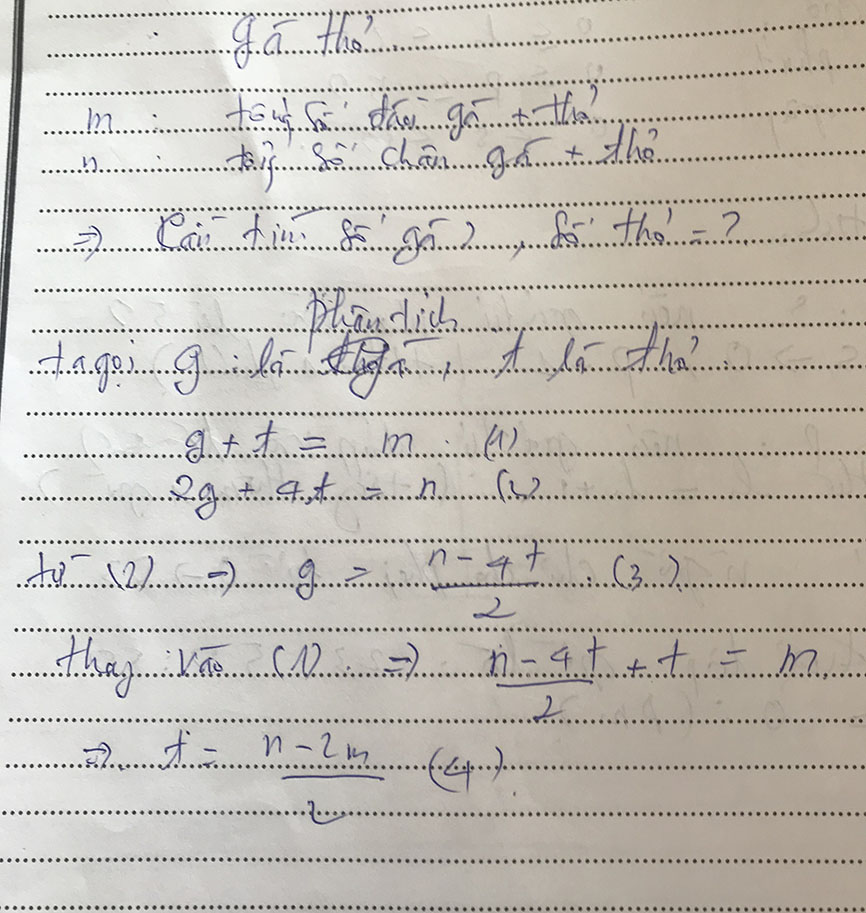 gà thỏ
m : tổng số đầu gà + thỏ
n : tổng số chân gà + thỏ
=> Cần tìm số gà ?, số thỏ = ?
phân tích
ta gọi g : là gà, t là thỏ.
g + t = m (1)
2g + 4t = n (2)
từ (2) => g = (n - 4t)/2 . (3)
thay vào (1) => (n - 4t)/2 + t = m
=> t = (n - 2m)/2 (4)